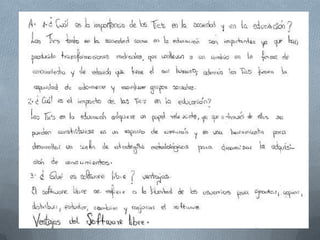 1- ¿Cuál es la importancia de las Tics en la sociedad y en la educación?
Las Tics tanto en la sociedad como en la educación son importantes ya que han
producido transformaciones radicales, que conlleva a un cambio en la forma de
conocimiento y de relación que tiene el ser humano; además las Tics tienen la
capacidad de adormecer y movilizar grupos sociales.
2- ¿Cuál es el impacto de las Tics en la educación?
Las Tics en la educación adquiere un papel relevante, ya que a través de ellas se
pueden constituirse en un espacio de encuentro y en una herramienta para
desarrollar un sinfín de estrategias metodológicas para dinamizar la adquisi-
ción de conocimientos.
3- ¿Qué es software libre? ventajas.
El software libre se refiere a la libertad de los usuarios para ejecutar, copiar,
distribuir, estudiar, cambiar y mejorar el software.
Ventajas del Software libre.